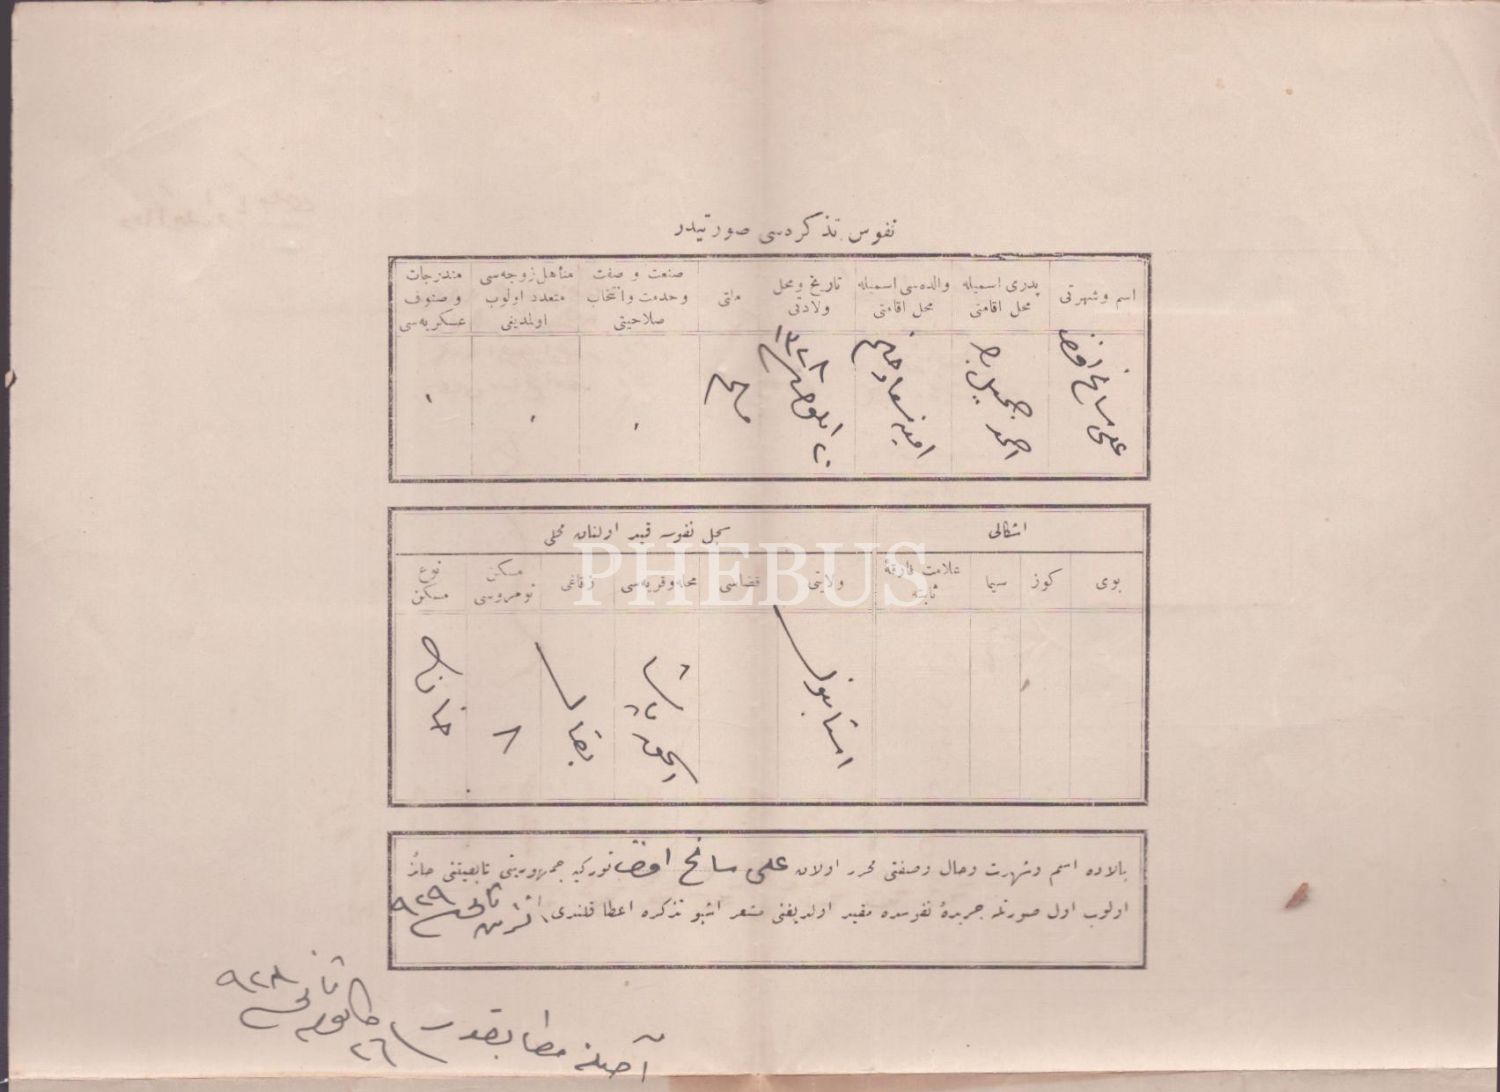 نفوس تذكره‌سی صورتیدر
اسم و شهرتی
پدری اسمیله محل اقامتی
والده‌سی اسمیله محل اقامتی
تاریخ و محل ولادتی
ملتی
صنعت و صفت و خدمت و انتخاب صلاحیتی
متأهل زوجه‌سی متعدد اولوب اولمدیغی
مندرجات و صنوف عسكریه‌سی
علی سانح افندی
احمد جمیل بك
۱۳۲۸
اشكالی
سجل نفوسه قید اولنان محلی
بوی
كوز
سیما
علامت فارقهٔ ثابته
ولایتی
قضاسی
محله و قریه‌سی
زقاغی
مسكن نومروسی
نوع مسكن
استانبول
بقال
۸
خانه
PHEBUS
بالاده اسم و شهرت و حال و صفتی محرر اولان علی سانح افندی توركیه جمهوریتی تابعیتنی حائز
اولوب اول صورتله جریدهٔ نفوسده مقید اولدیغنی مشعر اشبو تذكره اعطا قلندی تشرین ثانی ۹۲۹
آصلنه مطابقدر
۲٦ كانون ثانی ۹۲۸